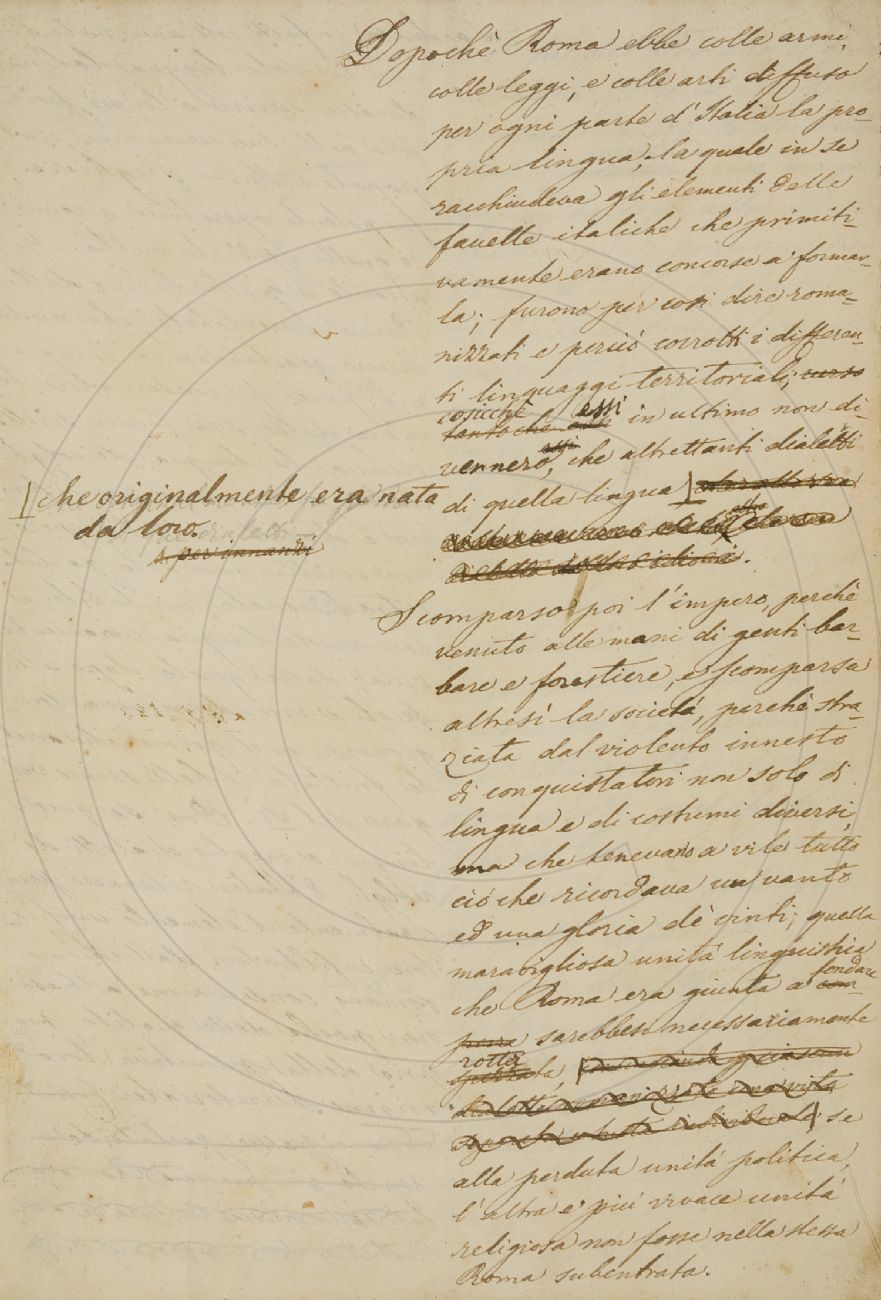 Dopochè Roma ebbe colle armi,
colle leggi, e colle arti diffuso
per ogni parte d'Italia la pro-
pria lingua, la quale in se
racchiudeva gli elementi delle
favelle italiche che primiti-
vamente erano concorse a formar-
la; furono per così dire roma-
nizzati e perciò corrotti i differen-
ti linguaggi territoriali,
cosicchè essi
tanto che in ultimo non di-
essi
vennero, che altrettanti dialetti
di quella lingua
che originalmente era nata
da loro.
per innanzi
Scomparso poi l'impero, perchè
venuto alle mani di genti bar-
bare e forestiere, e scomparsa
altresì la società, perchè stra-
ziata dal violento innesto
di conquistatori non solo di
lingua e di costumi diversi,
ma che tenevano a vile tutto
ciò che ricordava un vanto
ed una gloria dè vinti; quella
maravigliosa unità linguistica
che Roma era giunta a fondare
com-
porre sarebbesi necessariamente
rotta
spezzata,
se
alla perduta unità politica,
l'altra e più vivace unità
religiosa non fosse nella stessa
Roma subentrata.